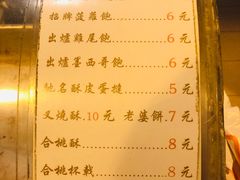 招牌菠蘿飽......6元
出爐雞尾飽......6元
出爐墨西哥飽......6元
馳名酥皮蛋撻......5元
叉燒酥.10元 老婆餅.7元
合桃酥......8元
合桃杯戟......8元